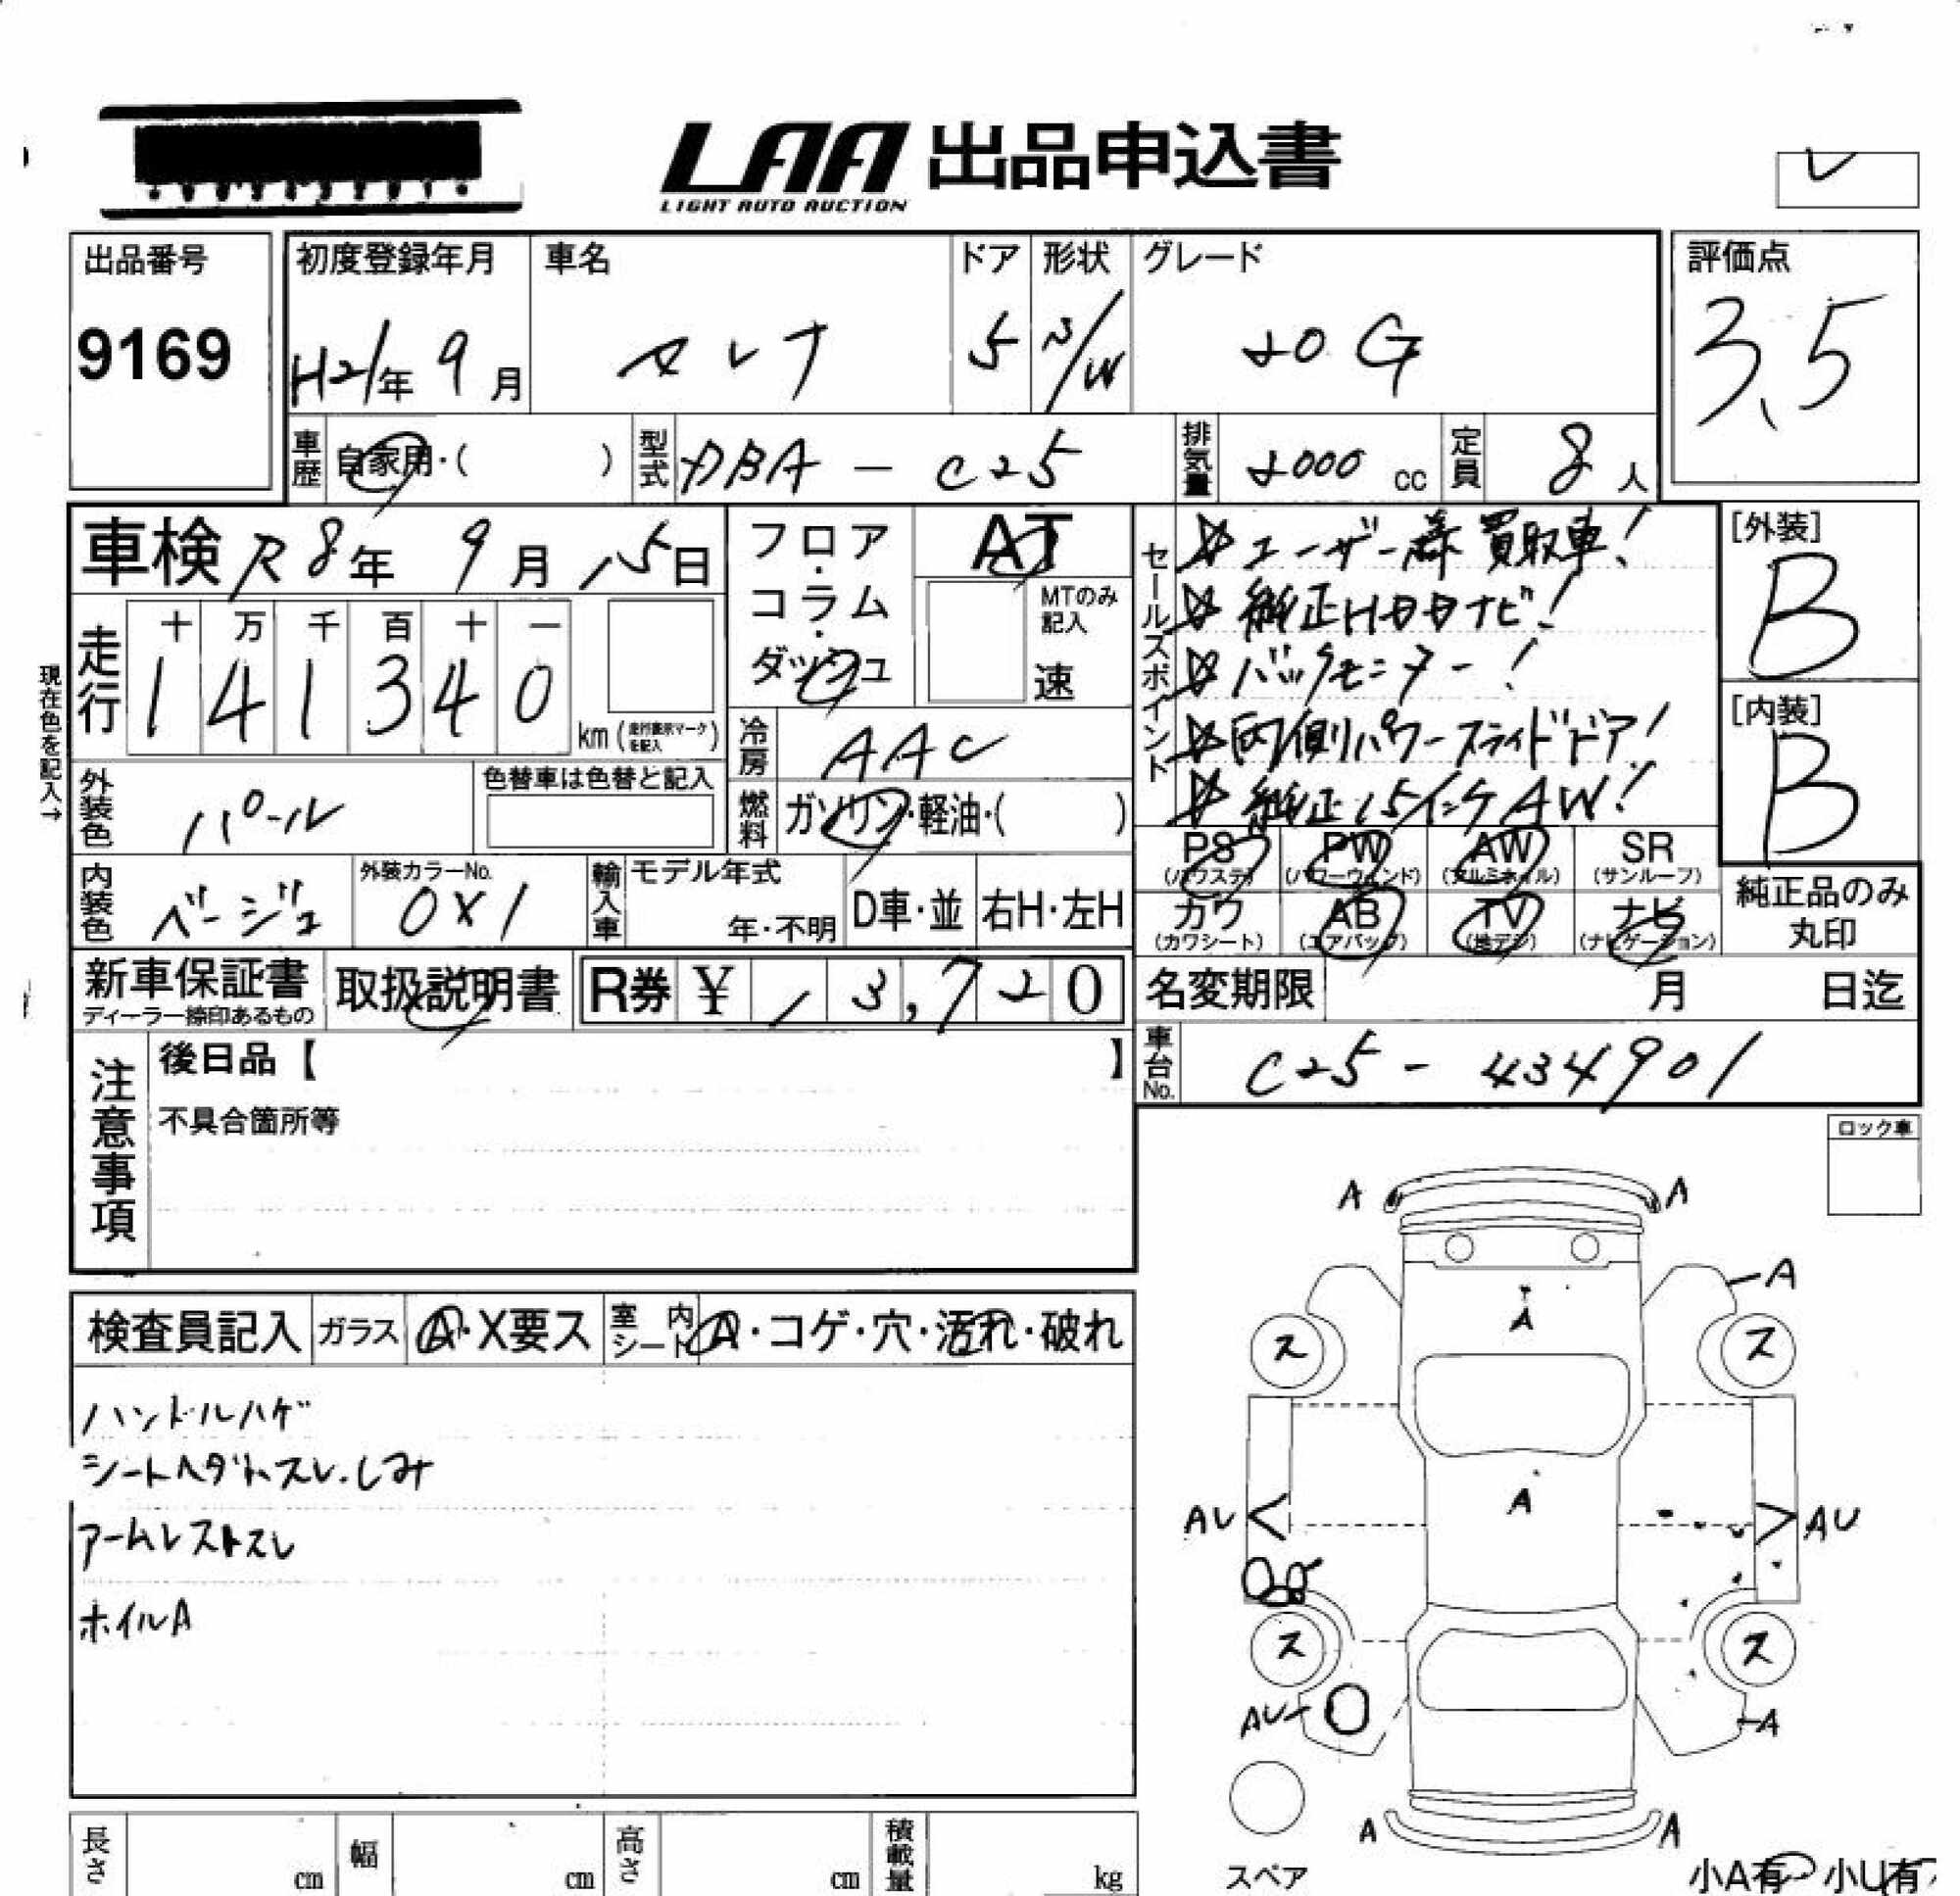 LAA 出品申込書
LIGHT AUTO AUCTION
出品番号
9169
初度登録年月
H21年 9月
車名
セレナ
ドア
5
形状
S/W
グレード
20G
評価点
3.5
車歴 自家用・( )
型式 DBA-C25
排気量 2000 cc
定員 8人
車検 R8年 9月 15日
フロア・コラム・ダッシュ
AT
MTのみ記入
速
走行
十 万 千 百 十 一
1 4 1 3 4 0
km(走行表示マークを記入)
現在色を記入→
冷房 AAC
外装色 パール
色替車は色替と記入
燃料 ガソリン・軽油・( )
内装色 ベージュ
外装カラーNo.
0X1
輸入車
モデル年式
年・不明
D車・並
右H・左H
セールスポイント
☆ユーザー様買取車!
☆純正HDDナビ!
☆バックモニター!
☆両側パワースライドドア!
☆純正15インチAW!
[外装]
B
[内装]
B
PS (パワステ)
PW (パワーウィンド)
AW (アルミホイル)
SR (サンルーフ)
カワ (カワシート)
AB (エアバッグ)
TV (地デジ)
ナビ (ナビゲーション)
純正品のみ丸印
新車保証書
ディーラー捺印あるもの
取扱説明書
R券 ¥ 13,720
名変期限 月 日迄
車台No. C25-434901
注意事項
後日品【 】
不具合箇所等
ロック車
検査員記入
ガラス A・X要ス
室内シート A・コゲ・穴・汚れ・破れ
ハンドルハゲ
シートヘタリ、スレ、しみ
アームレストスレ
ホイルA
A A
A
A
ス ス
A
AU AU
ス ス
AU A
A A
スペア
小A有 小U有
長さ cm
幅 cm
高さ cm
積載量 kg